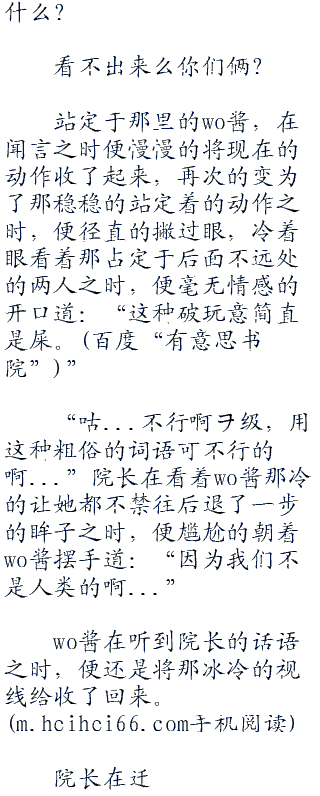 什么？
看不出来么你们俩？
站定于那里的wo酱，在
闻言之时便慢慢的将现在的
动作收了起来，再次的变为
了那稳稳的站定着的动作之
时，便径直的撇过眼，冷着
眼看着那占定于后面不远处
的两人之时，便毫无情感的
开口道：“这种破玩意简直
是屎。(百度“有意思书
院”)”
“咕...不行啊ヲ级，用
这种粗俗的词语可不行的
啊...”院长在看着wo酱那冷
的让她都不禁往后退了一步
的眸子之时，便尴尬的朝着
wo酱摆手道：“因为我们不
是人类的啊...”
wo酱在听到院长的话语
之时，便还是将那冰冷的视
线给收了回来。
(m.hcihci66.com手机阅读)
院长在迁